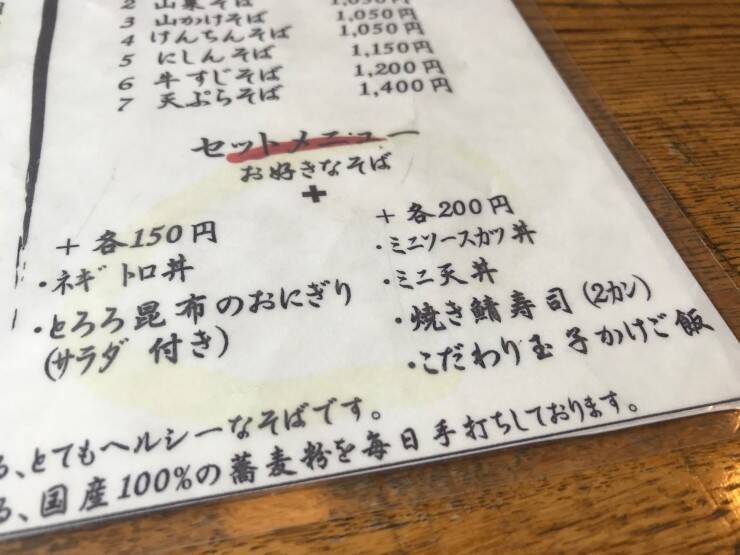 2 山菜そば
3 山かけそば 1,050円
4 けんちんそば 1,050円
5 にしんそば 1,150円
6 牛すじそば 1,200円
7 天ぷらそば 1,400円
セットメニュー
お好きなそば
+
+ 各150円
・ネギトロ丼
・とろろ昆布のおにぎり
(サラダ 付き)
+ 各200円
・ミニソースカツ丼
・ミニ天丼
・焼き鯖寿司(2カン)
・こだわり玉子かけご飯
、とてもヘルシーなそばです。
、国産100%の蕎麦粉を毎日手打ちしております。